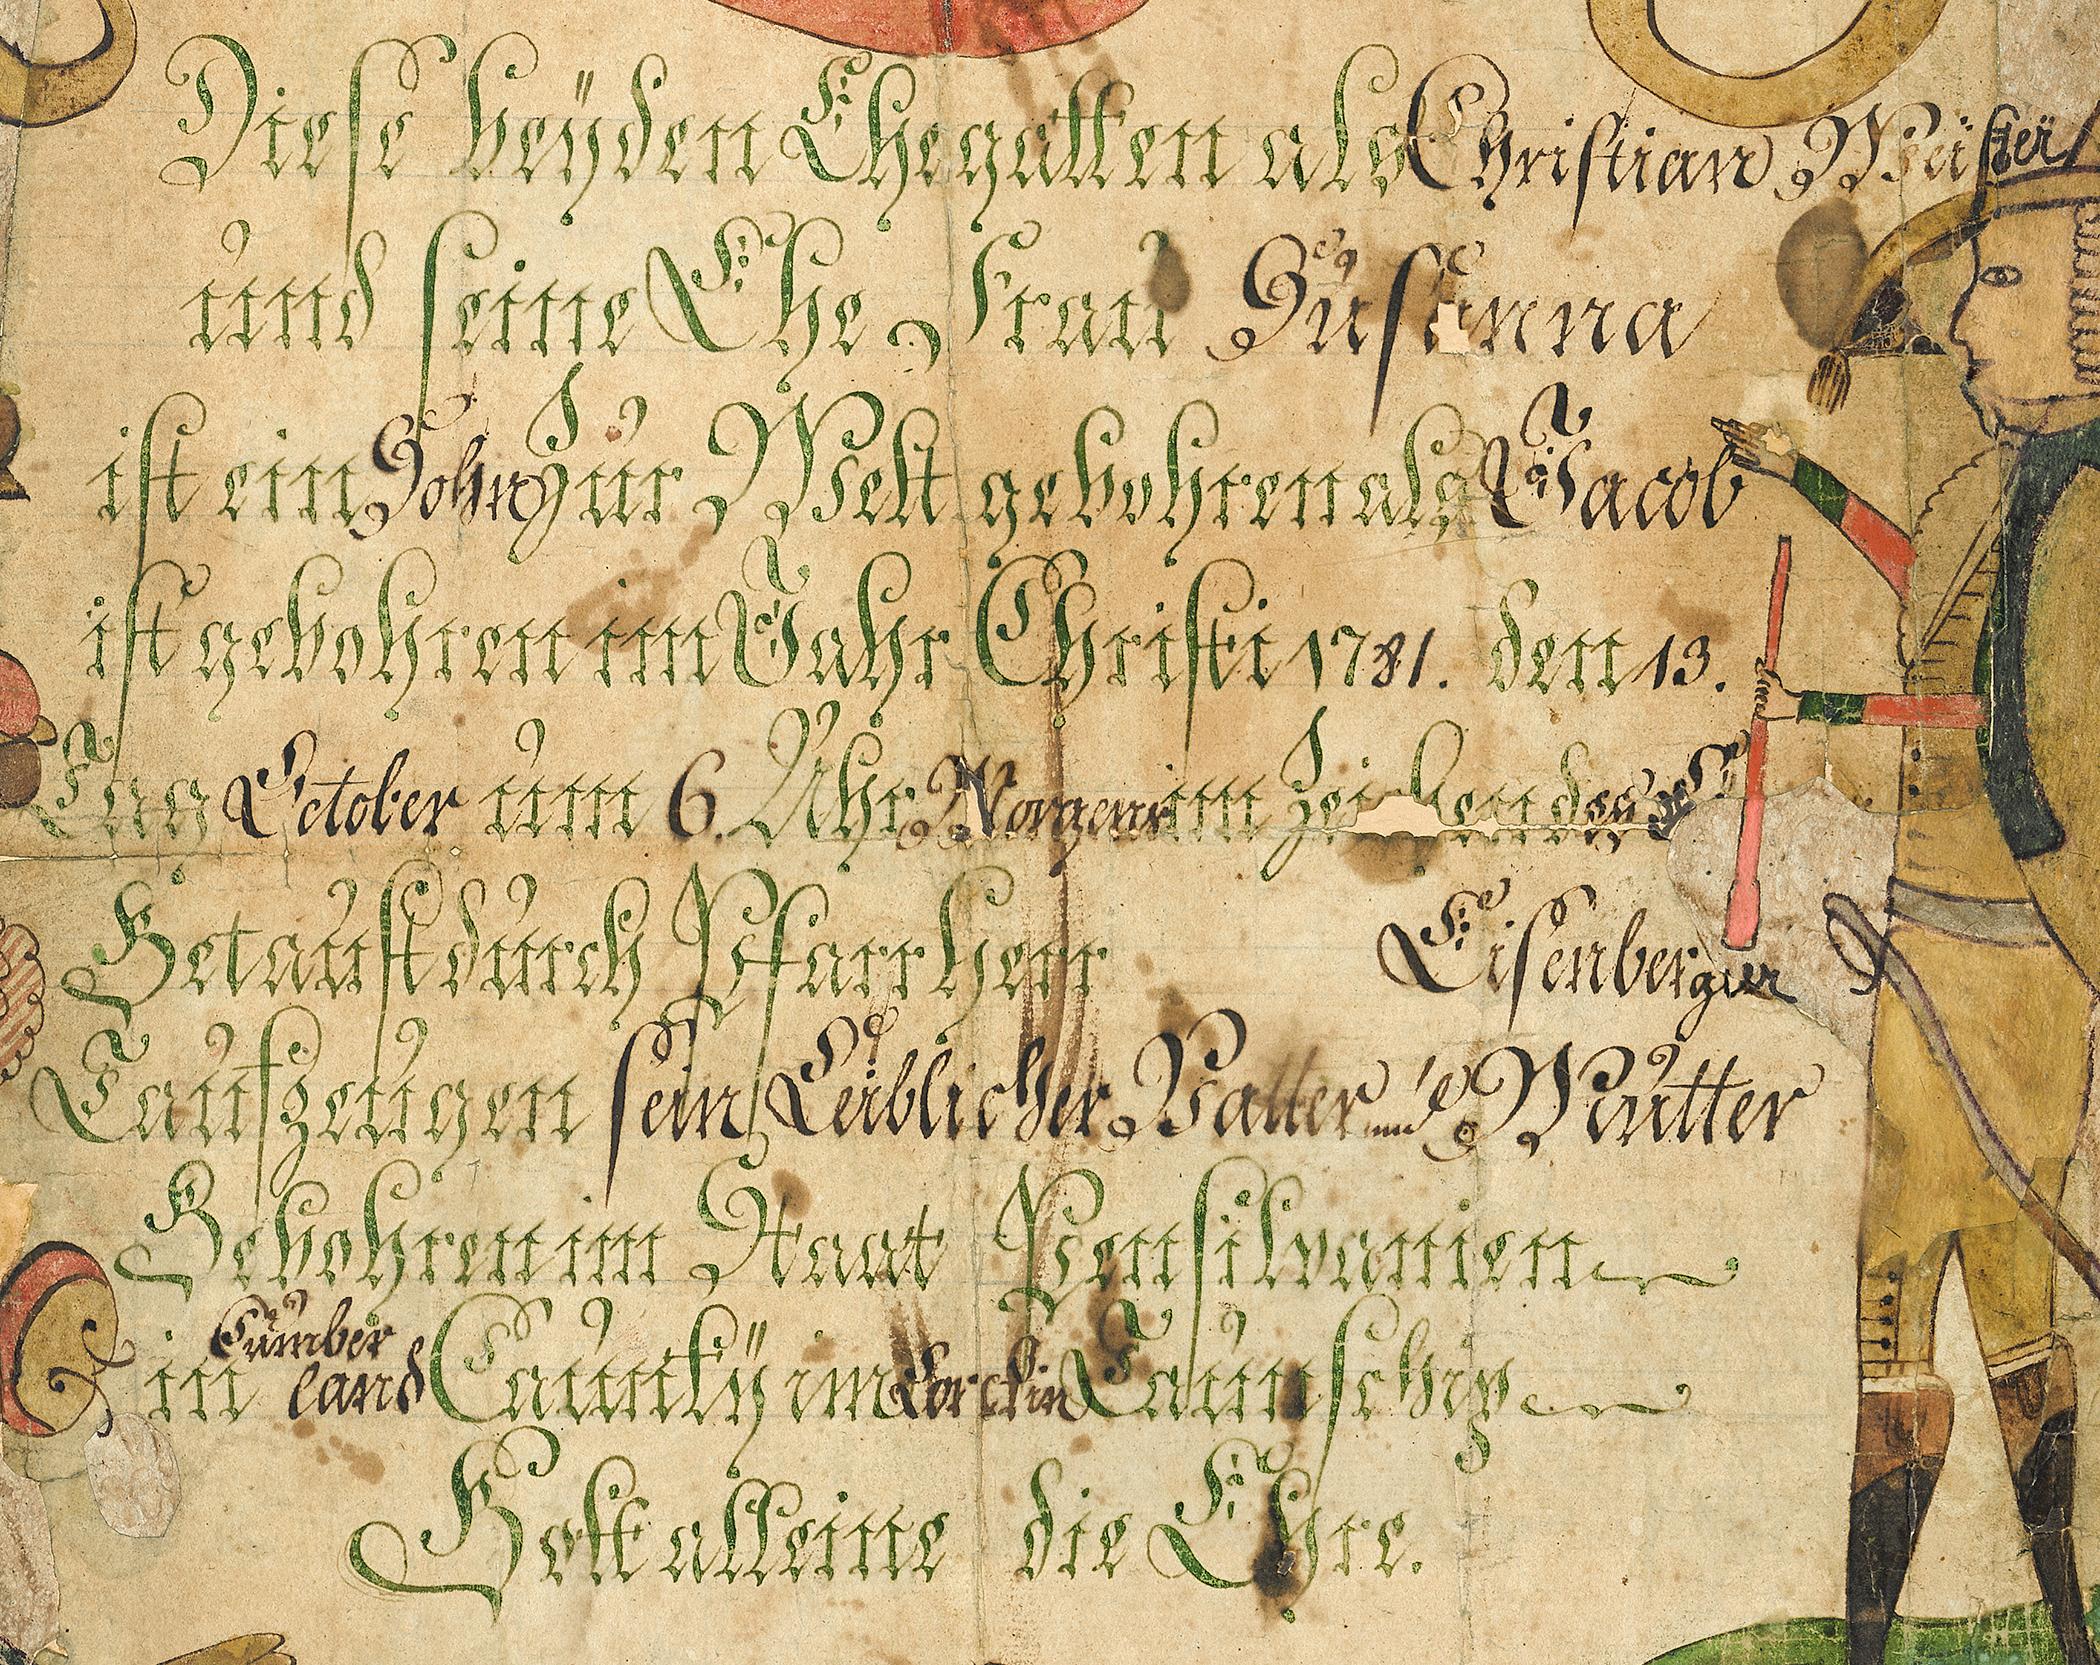 Diese beÿden Ehegatten als Christian
und seine Ehe Frau Susanna
ist ein Sohn zur Welt gebohren als Jacob
ist gebohren im Jahr Christi 1781. den 13.
Tag October um 6. Uhr Morgens im Zeichen des
Getauft durch Pfarr herr Eisenberger
Taufzeugen sein Leiblicher Vatter und Mutter
Gebohren im Staat Pensilvanien
in Cumber land Caunty im Taunschip
Gott alleine die Ehre.